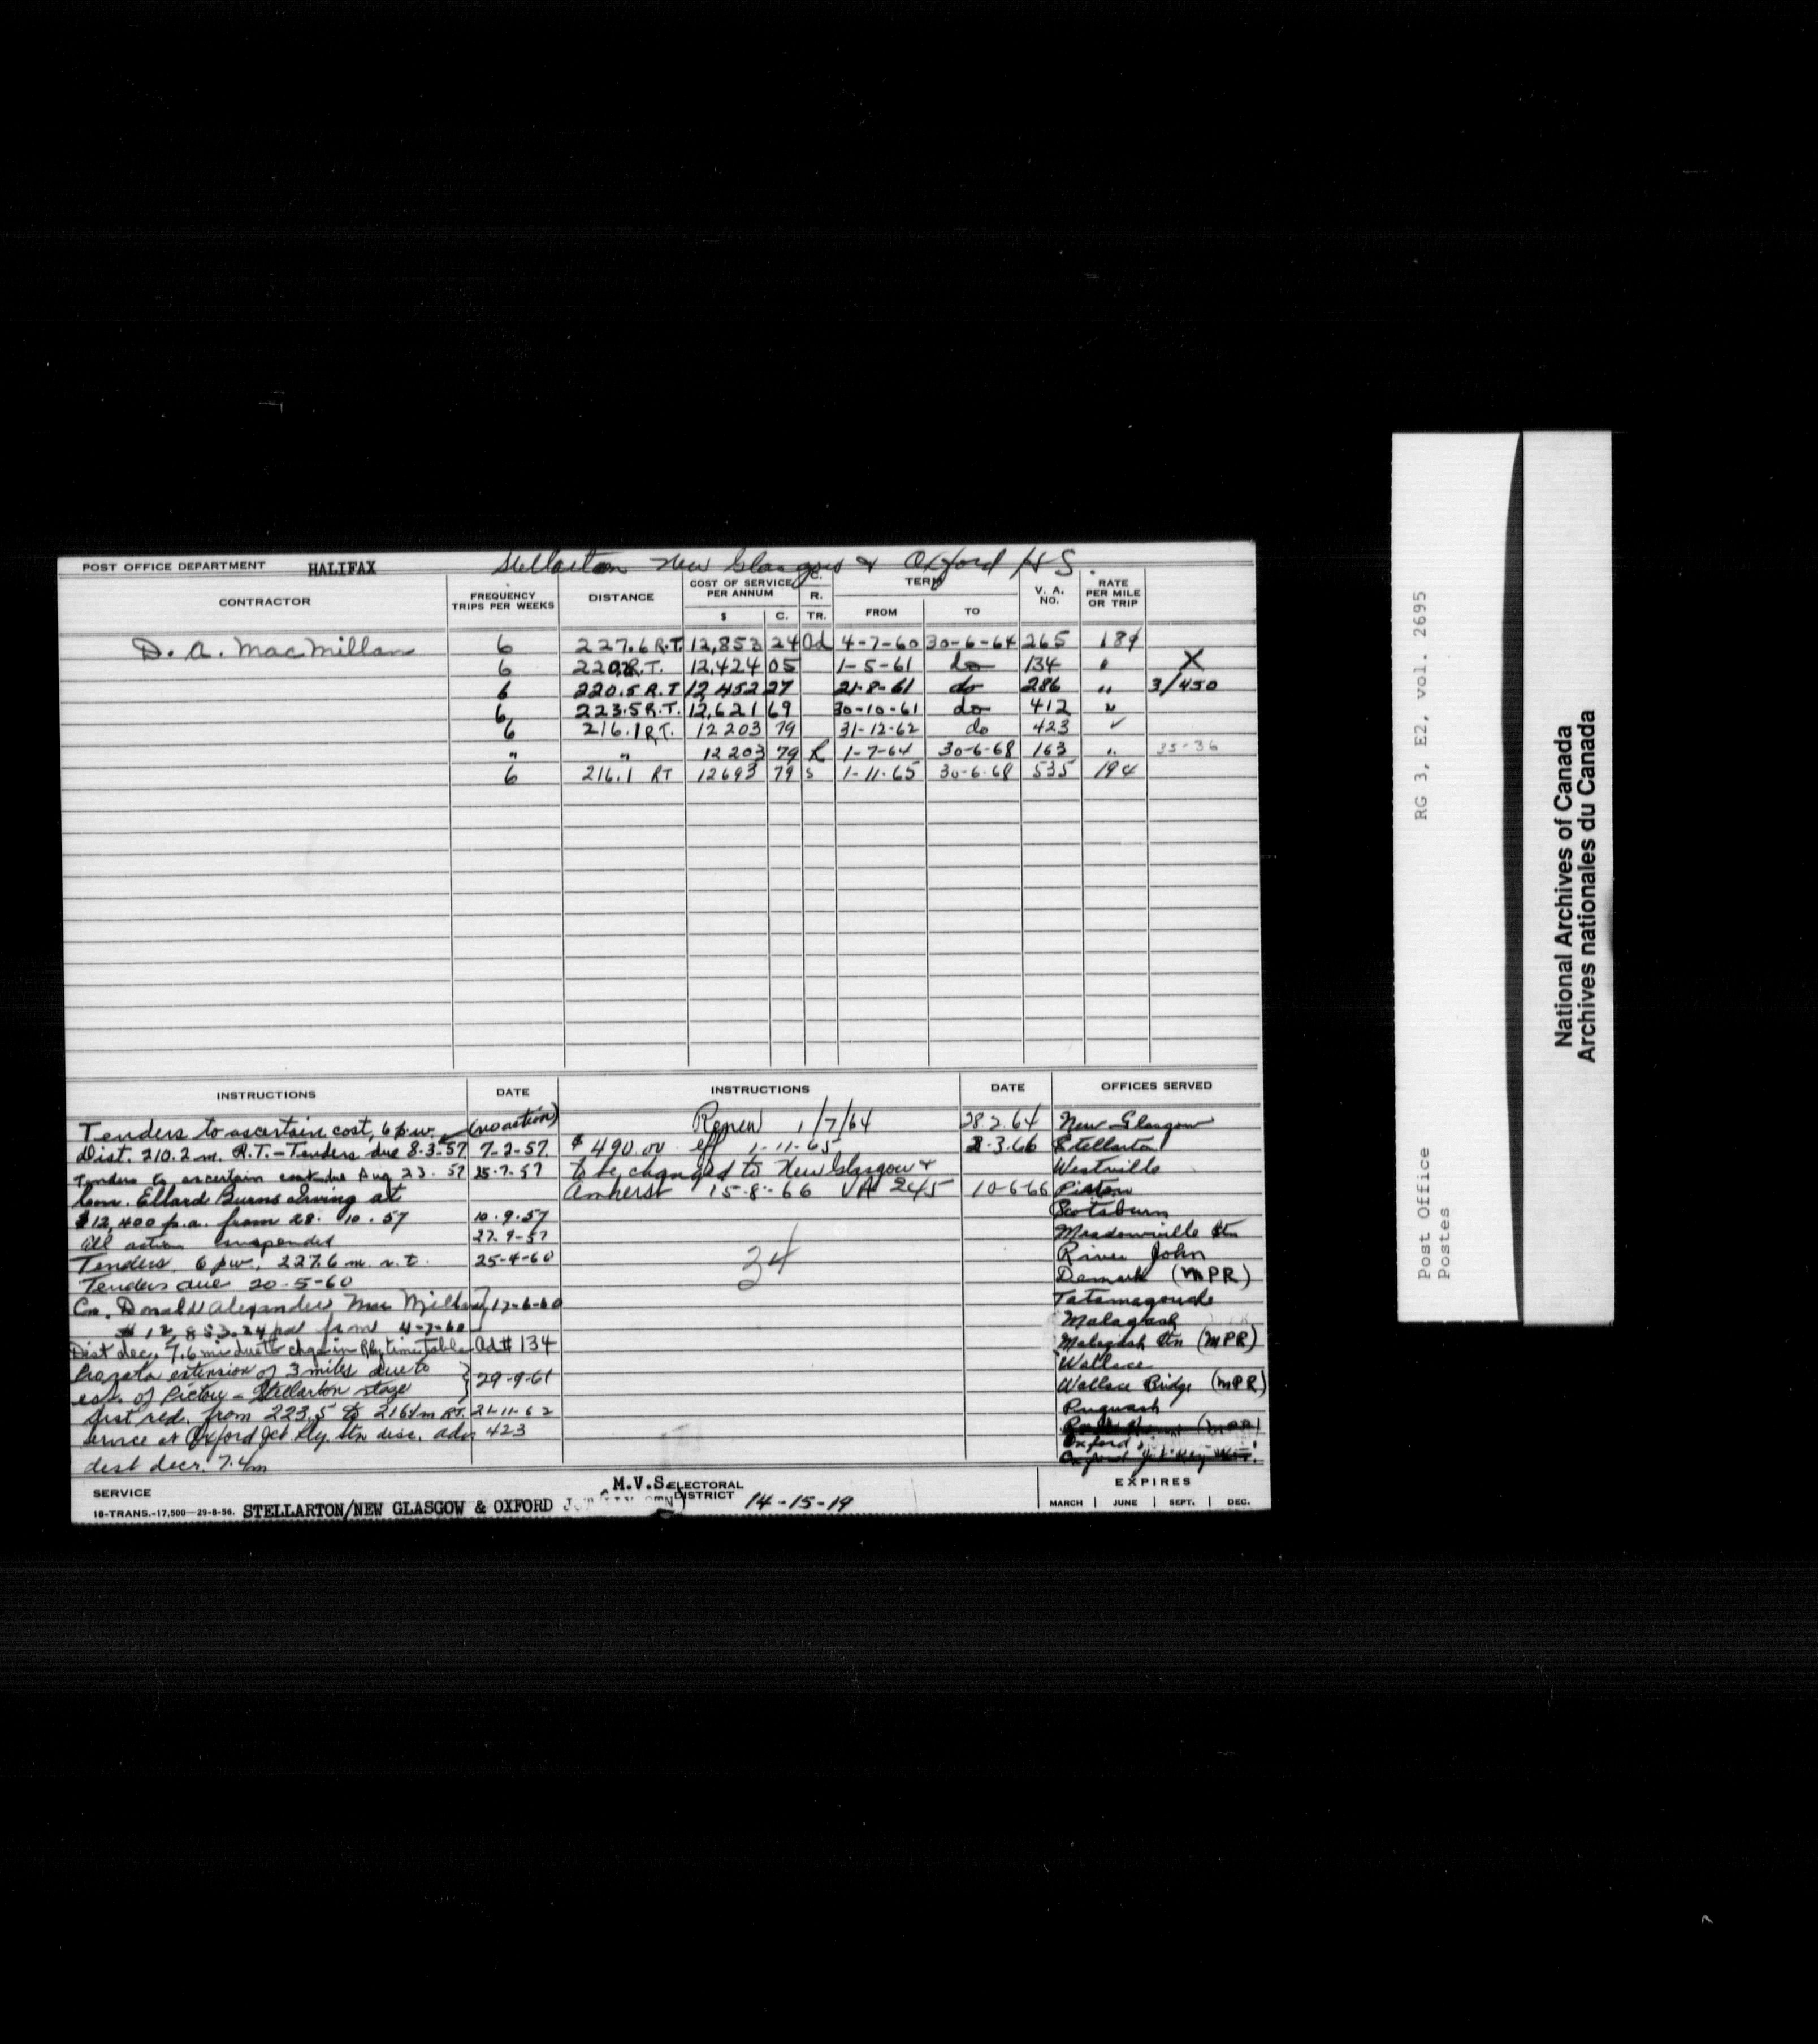 Stellarton New Glasgow & Oxford HS.
POST OFFICE DEPARTMENT HALIFAX
CONTRACTOR FREQUENCY TRIPS PER WEEKS DISTANCE COST OF SERVICE PER ANNUM $ C. C. R. TR. TERM FROM TO V. A. NO. RATE PER MILE OR TRIP
D. A. MacMillan 6 227.6 R.T. 12,853 24 Ad 4-7-60 30-6-64 265 18¢
6 220.2 R.T. 12,424 05 1-5-61 do 134 " X
6 220.5 R.T 12,452 27 21-8-61 do 286 " 3/450
6 223.5 R.T. 12,621 69 30-10-61 do 412 "
6 216.1 R.T. 12203 79 31-12-62 do 423 "
" " 12203 79 R 1-7-64 30-6-68 163 " 35-36
6 216.1 RT 12693 79 s 1-11-65 30-6-68 535 19¢
INSTRUCTIONS DATE
Tenders to ascertain cost, 6 p.w. (no action)
Dist. 210.2 m. R.T. - Tenders due 8-3-57 7-2-57.
Tenders to ascertain cost due Aug 23. 57 25-7-57
Con. Ellard Burns Irving at
$12,400 p.a. from 28. 10. 57 10.9.57
All action suspended 27.9-57
Tenders. 6 pw. 227.6 m. r.t. 25-4-60
Tenders due 20-5-60
Con. Donald Alexander MacMillan, 17-6-60
$12,853.24 pa from 4-7-60
Dist dec. 7.6 mi due to chge in Rly time table Ad# 134
Prorata extension of 3 miles due to
est. of Pictou - Stellarton stage 29-9-61
dist red. from 223.5 to 216.1 m RT. 21-11-62
service at Oxford Jct. Rly. Stn disc. adv. 423
dist decr. 7.4m
INSTRUCTIONS DATE
Renew 1/7/64 28.2.64
$490.00 eff 1-11-65 3-66
to be changed to New Glasgow &
Amherst 15-8-66 VA 245 10-6-66
24
OFFICES SERVED
New Glasgow
Stellarton
Westville
Pictou
Scotsburn
Meadowville Stn
River John
Denmark (MPR)
Tatamagouche
Malagash
Malagash Stn (MPR)
Wallace
Wallace Bridge (MPR)
Pugwash
(MPR)
Oxford
Oxford Jct Rly Stn.
SERVICE M.V.S. ELECTORAL DISTRICT 14-15-19 EXPIRES
18-TRANS.-17,500-29-8-56. STELLARTON/NEW GLASGOW & OXFORD MARCH | JUNE | SEPT. | DEC.
RG 3, E2, vol. 2695
Post Office
Postes
National Archives of Canada
Archives nationales du Canada